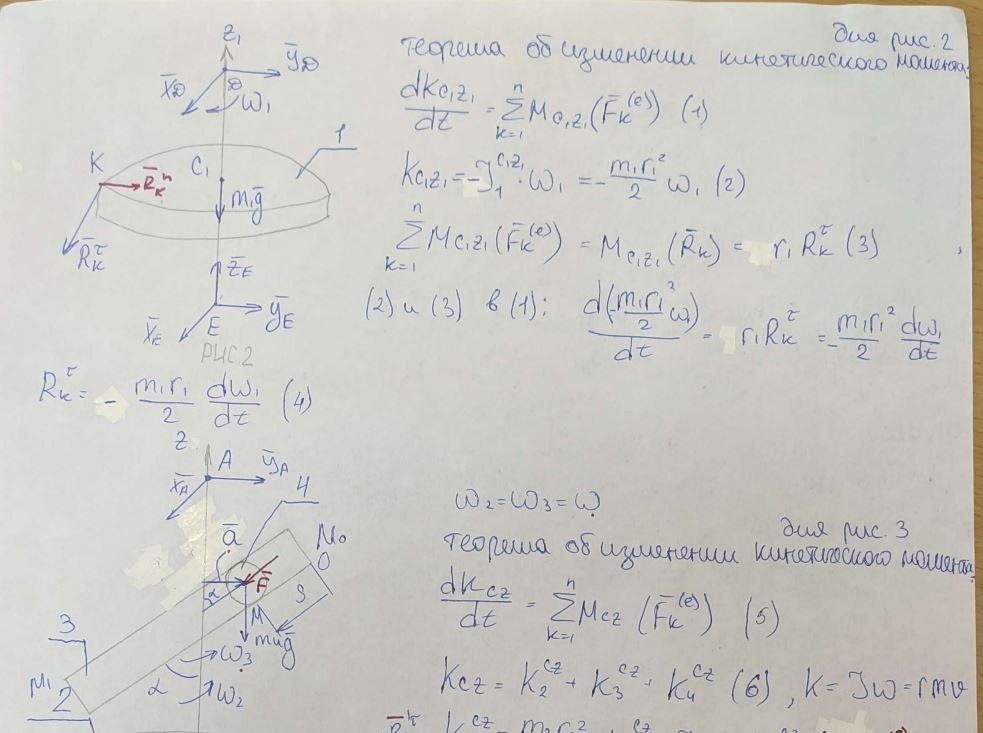 для рис. 2
теорема об изменении кинетического момента:
dKc₁z₁/dt = Σₖ₌₁ⁿ Mc₁z₁(F̄ₖ⁽ᵉ⁾) (1)
Kc₁z₁ = -J₁ᶜ¹ᶻ¹ · ω₁ = - m₁r₁²/2 ω₁ (2)
Σₖ₌₁ⁿ Mc₁z₁(F̄ₖ⁽ᵉ⁾) = Mc₁z₁(R̄ₖ) = r₁Rₖᵗ (3)
(2) и (3) в (1): d(-m₁r₁²/2 ω₁)/dt = r₁Rₖᵗ = - m₁r₁²/2 dω₁/dt
z₁
x̄D D ȳD
ω₁
1
K C₁
R̄ₖⁿ
m₁ḡ
R̄ₖᵗ
z̄E
x̄E E ȳE
РИС.2
Rₖᵗ = - m₁r₁/2 dω₁/dt (4)
z
x̄A A ȳA
4
ā M₀
F̄ O
α S
M
m₄ḡ
3 ω₃
M₁ α
2 ω₂
ω₂ = ω₃ = ω
для рис. 3
теорема об изменении кинетического момента:
dKcz/dt = Σₖ₌₁ⁿ Mcz (F̄ₖ⁽ᵉ⁾) (5)
Kcz = K₂ᶜᶻ + K₃ᶜᶻ + K₄ᶜᶻ (6), K = Jω = rmv